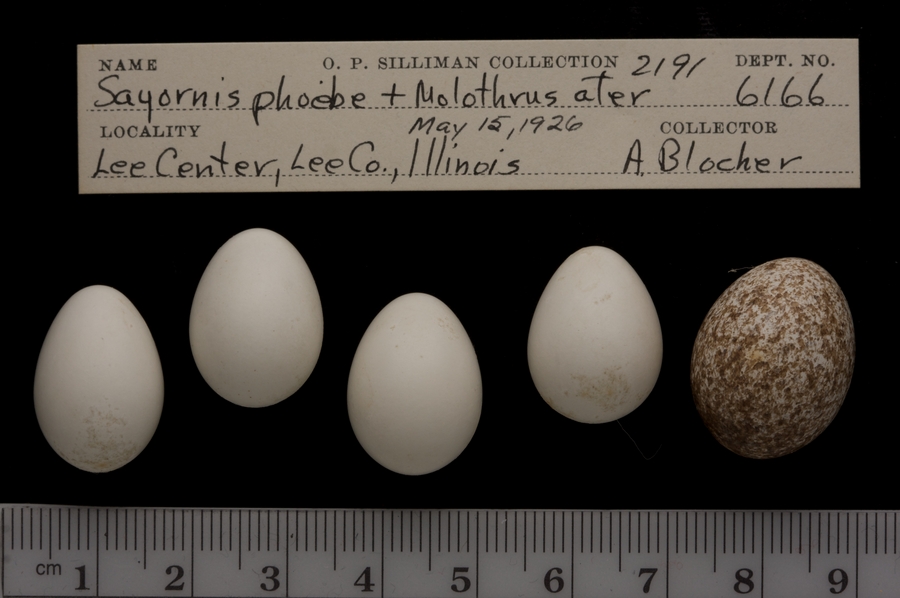 NAME O. P. SILLIMAN COLLECTION 2191 DEPT. NO.
Sayornis phoebe + Molothrus ater 6166
LOCALITY May 15, 1926 COLLECTOR
Lee Center, Lee Co., Illinois A. Blocher
cm 1 2 3 4 5 6 7 8 9